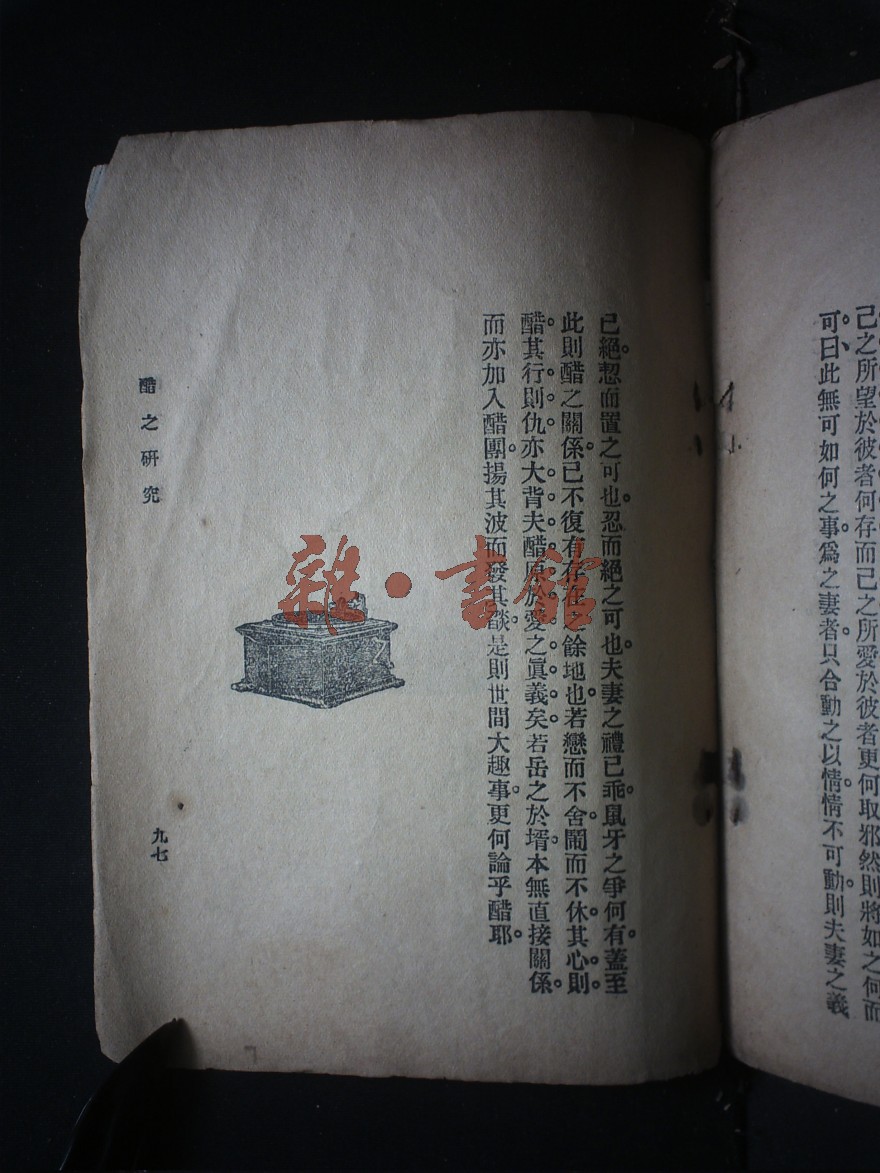 己之所望於彼者何存而己之所愛於彼者更何取邪然則將如之何而
可曰此無可如何之事爲之妻者只合動之以情情不可動則夫妻之義
已絕恝而置之可也忍而絕之可也夫妻之禮已乖鼠牙之爭何有蓋至
此則醋之關係已不復有存在之餘地也若戀而不舍鬧而不休其心則
醋其行則仇亦大背夫醋原於愛之眞義矣若岳之於壻本無直接關係
而亦加入醋團揚其波而發其燄是則世間大趣事更何論乎醋耶
醋之硏究
九七
雜·書館